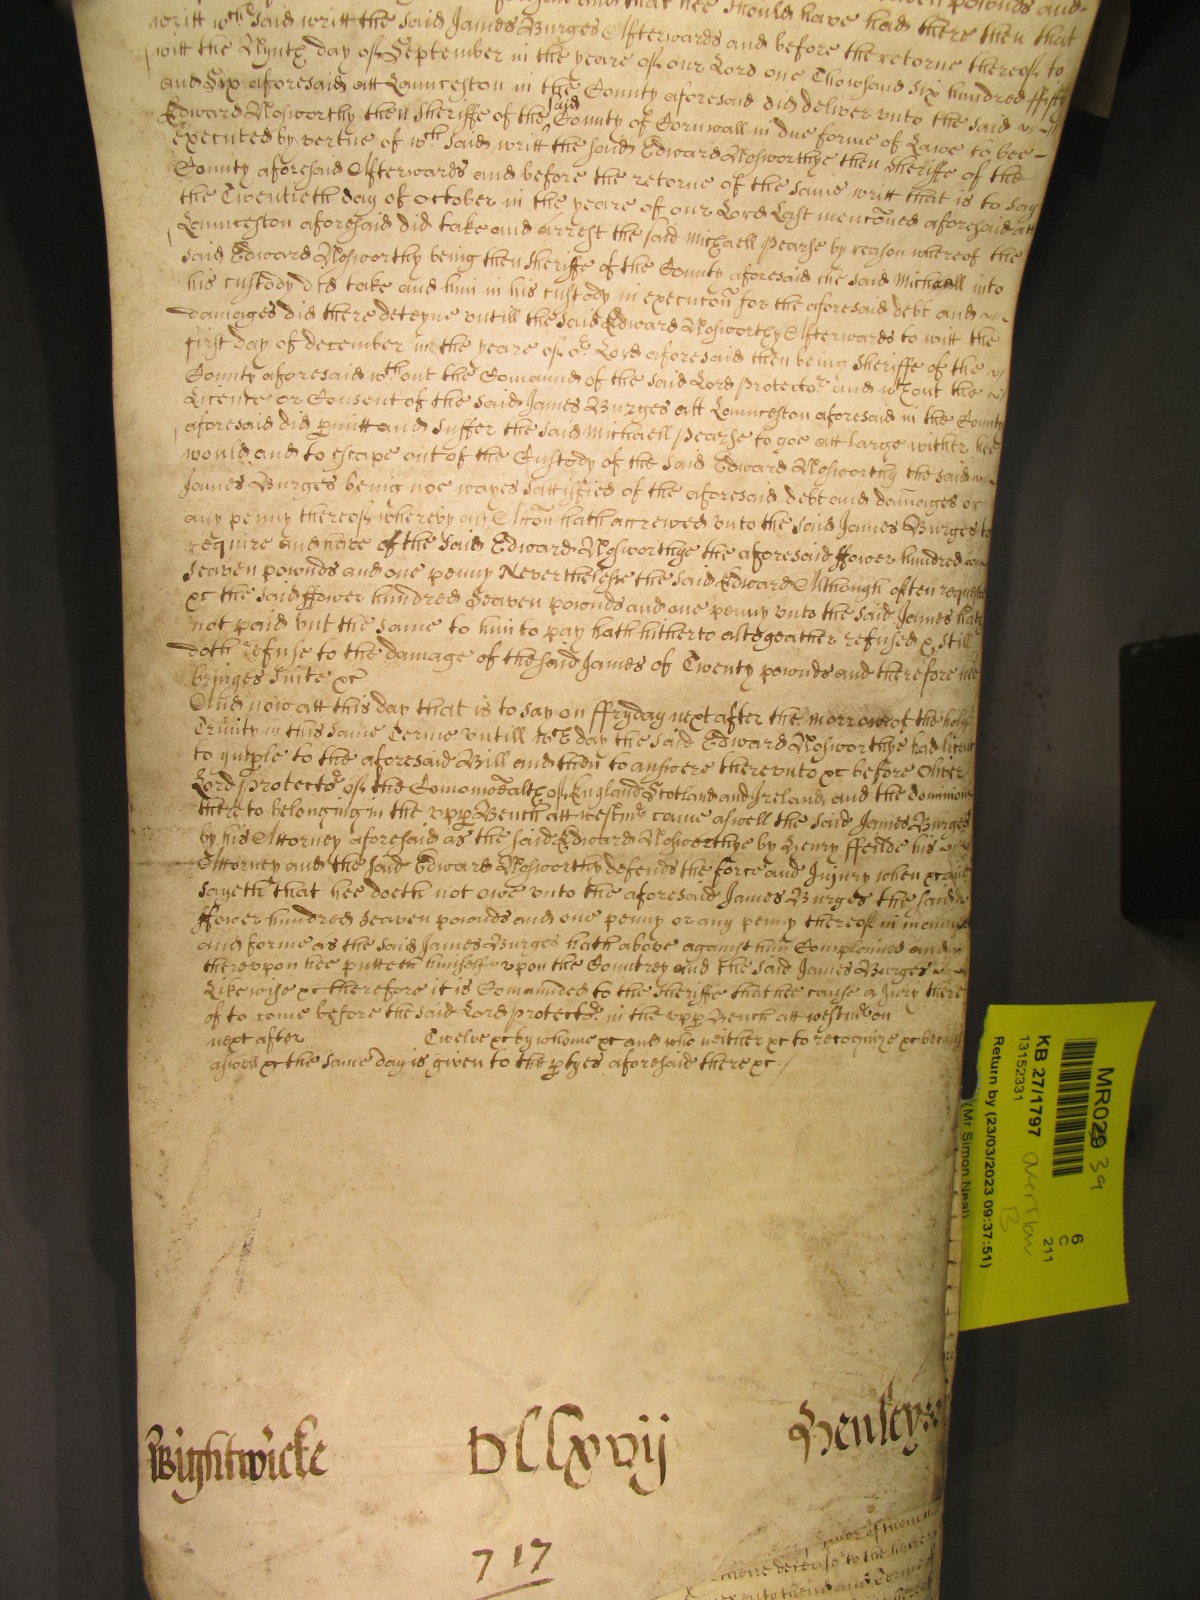 pownds and
should have had there then that
writt wch said writt the said James Burges Afterwards and before the retorne thereof to
witt the Nynth day of September in the yeare of our Lord one Thowsand six hundred ffifty
and Six aforesaid att Launceston in the County aforesaid did deliver unto the said
Edward Nosworthy then Sheriffe of the said County of Cornwall in due forme of Lawe to bee
executed by vertue of wch said writt the said Edward Nosworthye then Sheriffe of the
County aforesaid Afterwards and before the retorne of the same writt that is to say
the Twentieth day of October in the yeare of our Lord Last menconed aforesaid att
Launceston aforesaid did take and arrest the said Michaell Pearse by reason whereof the
said Edward Nosworthy being then Sheriffe of the County aforesaid the said Michaell into
his custody did take and him in his custody in execucon for the aforesaid debt and
damages did there deteyne untill the said Edward Nosworthy Afterwards to witt the
first day of december in the yeare of or Lord aforesaid then being Sheriffe of the
County aforesaid wthout the Comaund of the said Lord Protector and wthout the
Licence or Consent of the said James Burges att Launceston aforesaid in the County
aforesaid did pmitt and suffer the said Michaell Pearse to goe att large wither hee
would and to escape out of the Custody of the said Edward Nosworthy the said
James Burges being noe wayes sattisfied of the aforesaid debt and damages or
any penny thereof whereby an Accon hath accrewed unto the said James Burges to
require and have of the said Edward Nosworthye the aforesaid ffower hundred
seaven pownds and one penny Neverthelesse the said Edward Although often request
xc the said ffower hundred Seaven pownds and one penny unto the said James hath
not paid but the same to him to pay hath hitherto altogeather refused & still
doth refuse to the damage of the said James of Twenty pownds and therefore hee
bringes suite xc
And now att this day that is to say on ffryday next after the morrow of the holy
Trinity in this same Terme untill wch day the said Edward Nosworthye had licence
to imple to the aforesaid Bill and then to answere thereunto xc before Oliver
Lord Protector of the Comonwealth of England Scotland and Ireland and the dominions
thereto belonging in the upp Bench att westmr came aswell the said James Burges
by his Attorney aforesaid as the said Edward Nosworthye by Henry ffende his
Attorney and the said Edward Nosworthy defends the force and Injury when xc and
sayeth that hee doeth not owe unto the aforesaid James Burges the said
ffower hundred seaven pownds and one penny or any penny thereof in manner
and forme as the said James Burges hath above against him Complained and
thereupon hee putteth himselfe upon the Countrey and the said James Burges
Likewise xc therefore it is Comaunded to the Sheriffe that hee cause a Jury there
of to come before the said Lord Protector in the upp Bench att westmr on
next after Twelve xc by whome xc and who neither xc to recognize xc because
aswell xc the same day is given to the ptyes aforesaid there xc
MR029 39
KB 27/1797
13152331
overflow B
6
C
211
Return by (23/03/2023 09:37:51)
(Mr Simon Neal)
Wightwicke DCCxvij Henley
717
decease to the